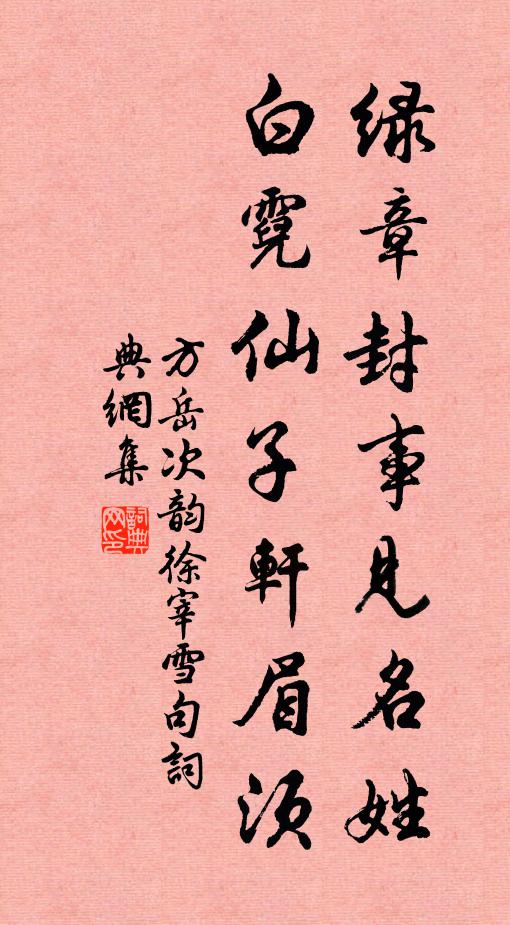 绿章封事見名姓
白霓仙子軒眉須
方岳次韵徐宰雪句詞
典網集
詞典
网印